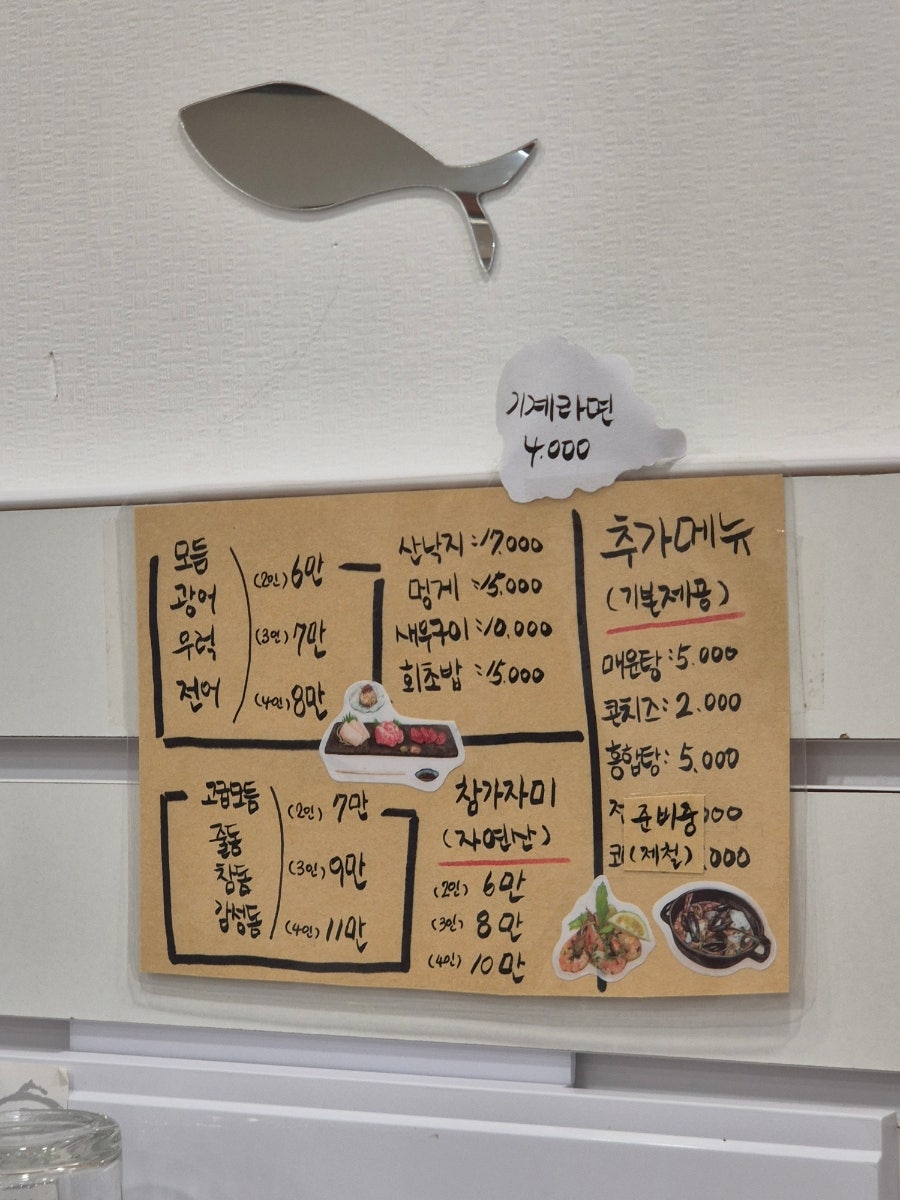 기계라면
4.000
모듬
광어
우럭
전어
(2인) 6만
(3인) 7만
(4인) 8만
산낙지 : 17.000
멍게 : 15.000
새우구이 : 10.000
회초밥 : 15.000
고급모듬
줄돔
참돔
감성돔
(2인) 7만
(3인) 9만
(4인) 11만
참가자미
(자연산)
(2인) 6만
(3인) 8만
(4인) 10만
추가메뉴
(기본제공)
매운탕 : 5.000
콘치즈 : 2.000
홍합탕 : 5.000
준비중
(제철)